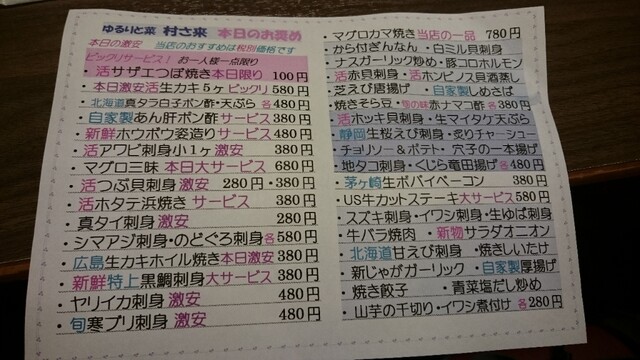 ゆるりと菜 村さ来 本日のお奨め
本日の激安 当店のおすすめは税別価格です
ビックリサービス! お一人様一点限り
・活サザエつぼ焼き本日限り 100円
・本日激安活生カキ5ヶビックリ 580円
・北海道真タラ白子ポン酢・天ぷら 各480円
・自家製あん肝ポン酢 サービス 380円
・新鮮ホウボウ姿造り サービス 480円
・活アワビ刺身小1ヶ激安 380円
・マグロ三昧 本日大サービス 680円
・活つぶ貝刺身 激安 280円・380円
・活ホタテ浜焼き サービス 380円
・真タイ刺身 激安 280円
・シマアジ刺身・のどぐろ刺身各580円
・広島生カキホイル焼き本日激安 380円
・新鮮特上黒鯛刺身大サービス 380円
・ヤリイカ刺身 激安 480円
・旬寒ブリ刺身 激安 480円
・マグロカマ焼き当店の一品 780円
・から付ぎんなん ・白ミル貝刺身
・ナスガーリック炒め・豚コロホルモン
・活赤貝刺身・活ホンビノス貝酒蒸し
・芝えび唐揚げ ・自家製しめさば
・焼きそら豆・旬の味赤ナマコ酢・各380円
・活ホッキ貝刺身・生マイタケ天ぷら
・静岡生桜えび刺身・炙りチャーシュー
・チョリソー&ポテト・穴子の一本揚げ
・地タコ刺身・くじら竜田揚げ各480円
・茅ヶ崎生ポパイベーコン 380円
・US牛カットステーキ大サービス580円
・スズキ刺身・イワシ刺身・生ゆば刺身
・牛バラ焼肉 ・新物サラダオニオン
・北海道甘えび刺身 ・焼きしいたけ
・新じゃがガーリック・自家製厚揚げ
・焼き餃子 ・青菜塩だし炒め
・山芋の千切り・イワシ煮付け・各280円